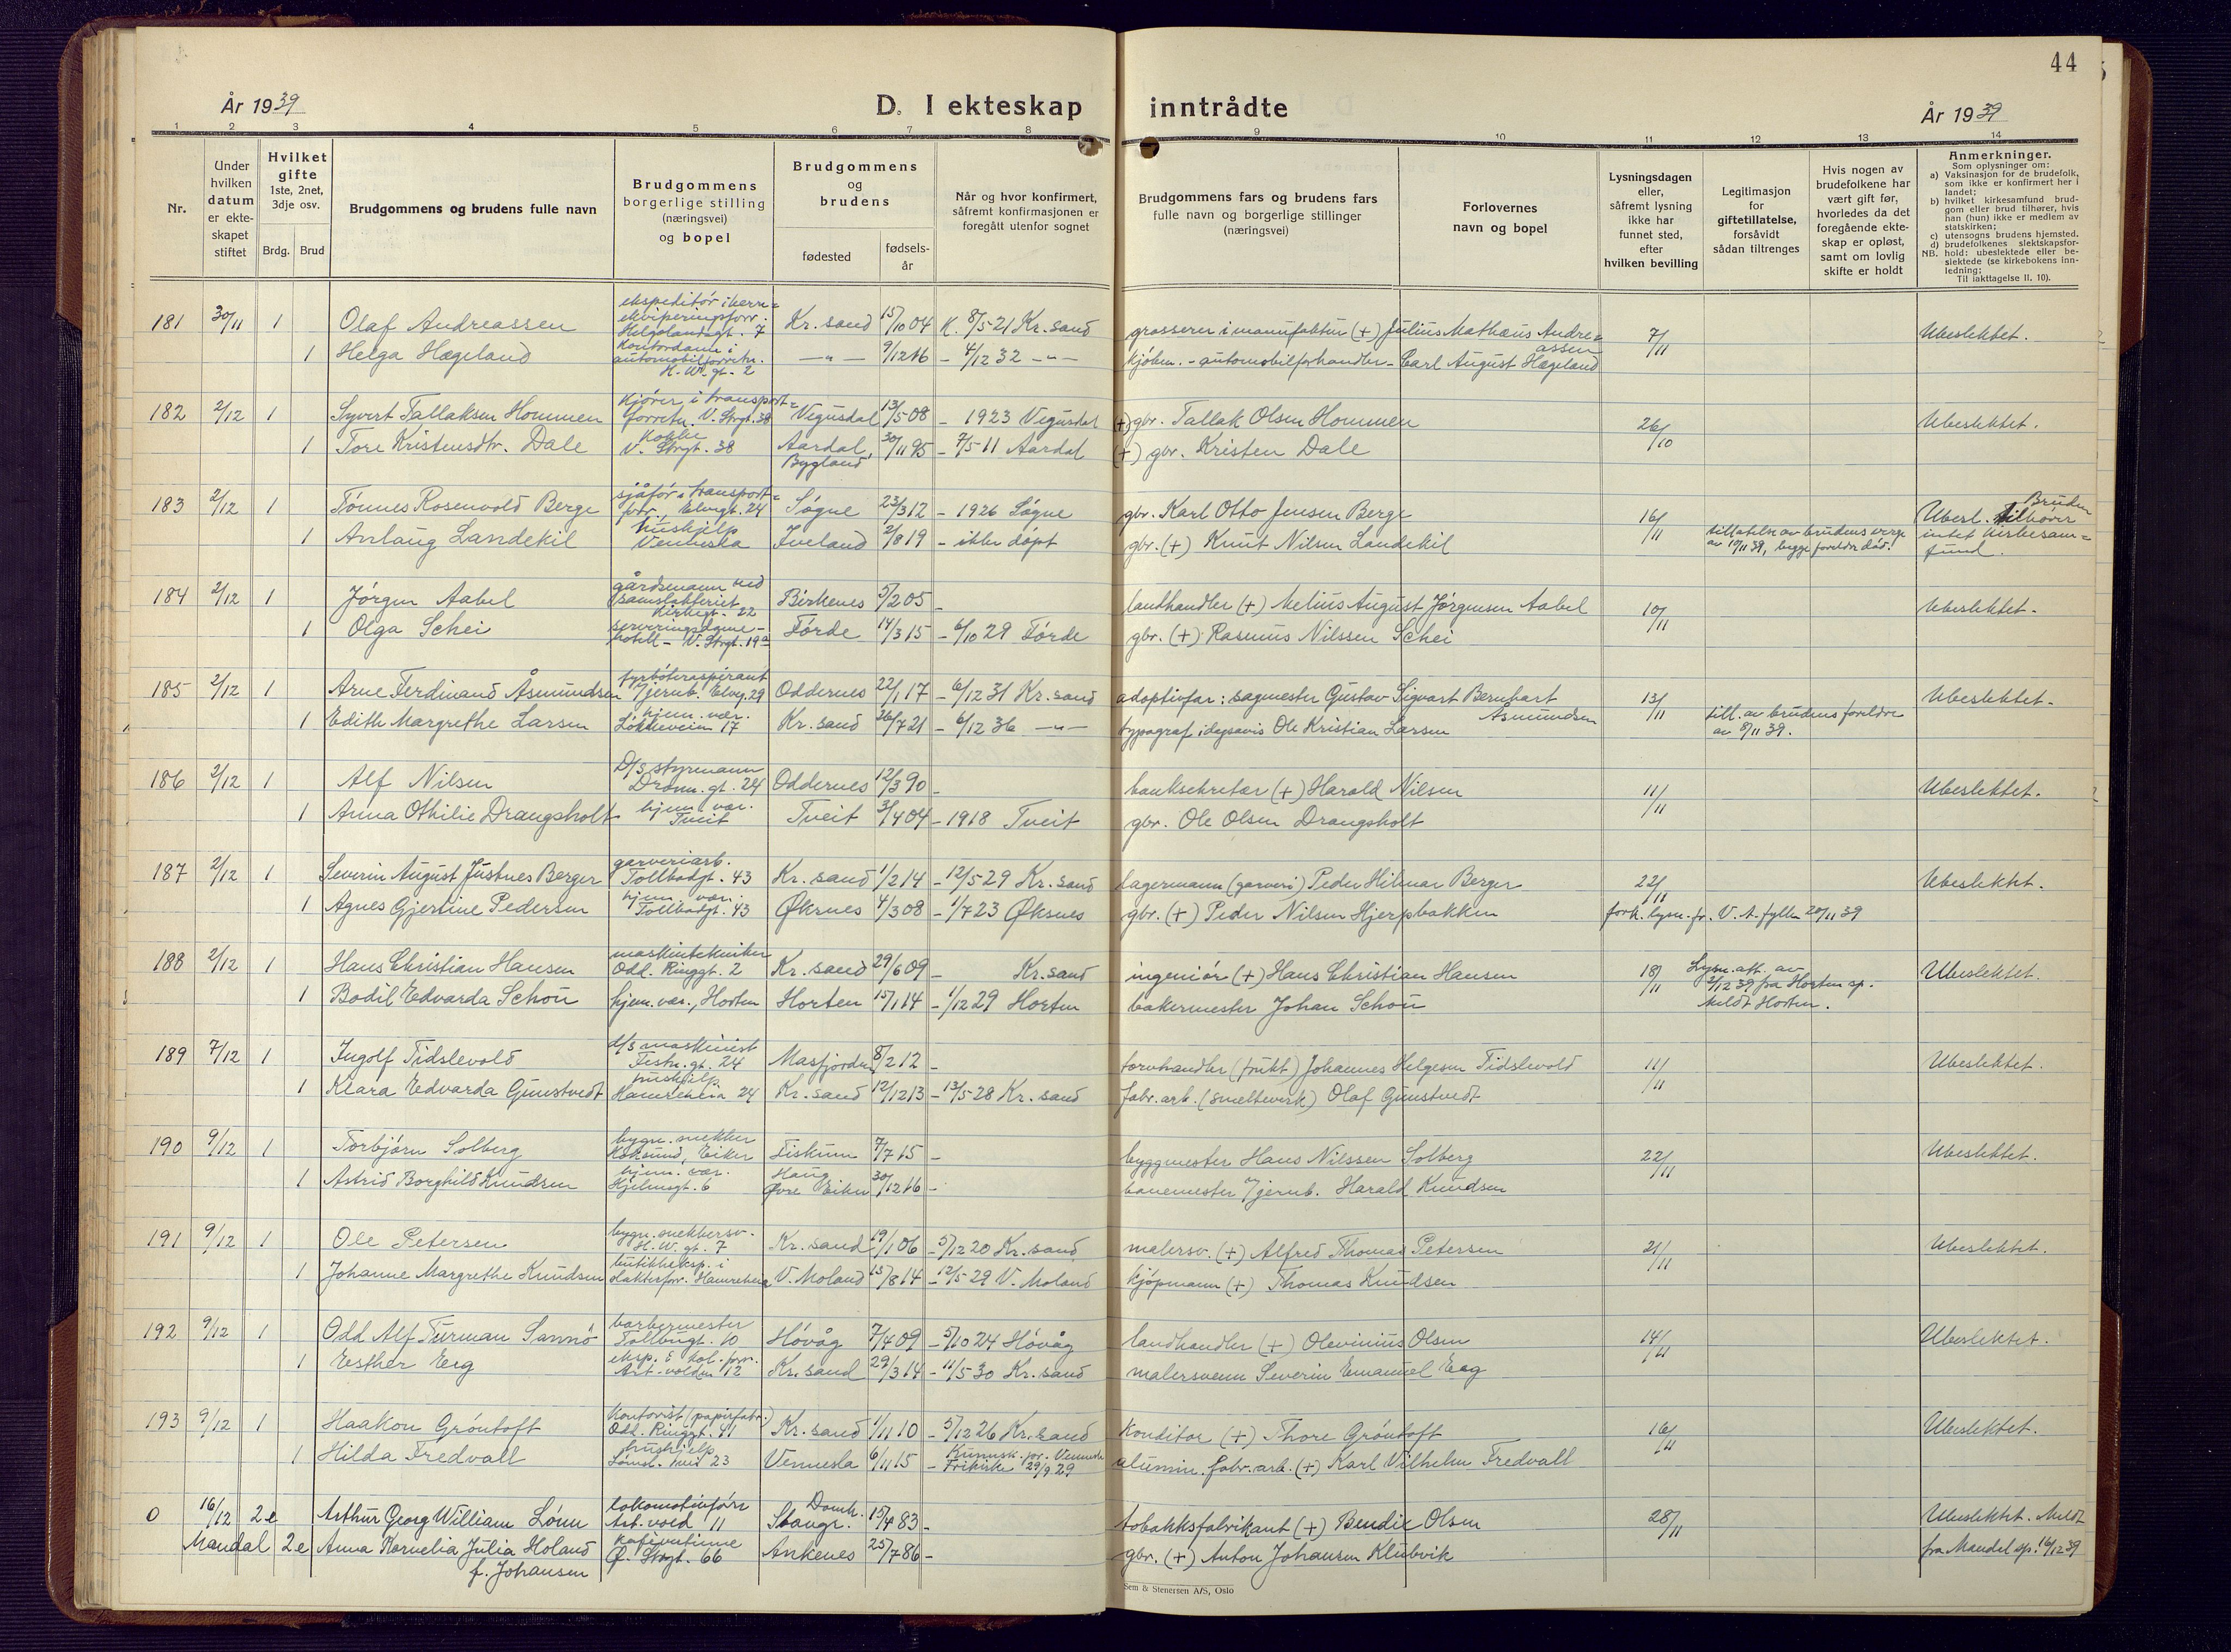 44
År 1939
D. I ekteskap inntrådte
År 1939
1 2 3 4 5 6 7 8 9 10 11 12 13 14
Nr.
Under hvilken datum er ekteskapet stiftet
Hvilket gifte 1ste, 2net, 3dje osv.
Brdg. Brud
Brudgommens og brudens fulle navn
Brudgommens borgerlige stilling (næringsvei) og bopel
Brudgommens og brudens
fødested
fødsels-år
Når og hvor konfirmert, såfremt konfirmasjonen er foregått utenfor sognet
Brudgommens fars og brudens fars fulle navn og borgerlige stillinger (næringsvei)
Forlovernes navn og bopel
Lysningsdagen eller, såfremt lysning ikke har funnet sted, efter hvilken bevilling
Legitimasjon for giftetillatelse, forsåvidt sådan tiltrenges
Hvis nogen av brudefolkene har vært gift før, hvorledes da det foregående ekteskap er opløst, samt om lovlig skifte er holdt
Anmerkninger.
Som oplysninger om:
a) Vaksinasjon for de brudefolk, som ikke er konfirmert her i landet;
b) hvilket kirkesamfund brudgom eller brud tilhører, hvis han (hun) ikke er medlem av statskirken;
c) utensogns brudens hjemsted.
d) brudefolkenes slektskapsforhold: ubeslektede eller beslektede (se kirkebokens innledning;
NB. Til iakttagelse II. 10).
181 30/11 1 Olaf Andreassen ekspeditør i herre=ekviperingsforr. Helgolandsgt. 7 Kr.sand 15/10 04 K. 8/5-21 Kr.sand grosserer i manufaktur (+) Julius Mathæus Andreassen 7/11 Ubeslektet.
1 Helga Hægeland kontordame i automobilforretn. H.W.gt. 2 —"— 9/12 16 - 4/12 32 —"— kjøbm. - automobilforhandler - Carl August Hægeland
182 2/12 1 Syvert Tallaksen Hommen kjører i transport=forretn. V. Strgt. 38 Vegusdal 13/5 08 - 1923 Vegusdal (+) gbr. Tallak Olsen Hommen 26/10 Ubeslektet.
1 Tore Kristensdtr. Dale kokke V. Strgt. 38 Aardal, Bygland 30/11 95 - 7/5-11 Aardal (+) gbr. Kristen Dale
183 2/12 1 Tønnes Rosenvold Berge sjåfør i transport=forr., Elvegt. 24 Søgne 23/3 12 - 1926 Søgne gbr. Karl Otto Jensen Berge 16/11 Ubesl. Bruden tilhører intet kirkesam=fund.
1 Anlaug Landekil hushjelp Vennesla Iveland 2/8 19 - ikke døpt gbr. (+) Knut Nilsen Landekil tillatelse av brudens verge av 10/11 39, begge foreldre død.
184 2/12 1 Jørgen Aabel gårdsmann ved samslakteriet Kirkegt. 22 Birkenes 5/2 05 - landhandler (+) Melius August Jørgensen Aabel 10/11 Ubeslektet.
1 Olga Schei serveringsdame - hotell - V. Strgt. 19a Førde 14/3 15 - 6/10 29 Førde gbr. (+) Rasmus Nilssen Schei
185 2/12 1 Arne Ferdinand Åsmundsen fyrbøteraspirant v/jernb. Elvg. 29 Oddernes 22/1 17 - 6/12 31 Kr.sand adoptivfar: sagmester Gustav Sigvart Bernhart Åsmundsen 13/11 Ubeslektet.
1 Edith Margrethe Larsen hjem. vær. Løkkeveien 17 Kr.sand 26/7 21 - 6/12 36 —"— typograf i dagsavis Ole Kristian Larsen till. av brudens foreldre av 8/11 39.
186 2/12 1 Alf Nilsen D/S styrmann Dronn. gt. 24 Oddernes 12/3 90 - banksekretær (+) Harald Nilsen 11/11 Ubeslektet.
1 Anna Othilie Drangsholt hjem. vær. Tveit Tveit 3/4 04 - 1918 Tveit gbr. Ole Olsen Drangsholt
187 2/12 1 Severin August Justnes Berger garveriarb. Tollbodgt. 43 Kr.sand 1/2 14 - 12/5-29 Kr.sand lagermann (garveri) Peder Hilmar Berger 22/11 Ubeslektet.
1 Agnes Gjertine Pedersen hjem. vær. Tollbodgt. 43 Øksnes 4/3 08 - 1/7 23 Øksnes gbr. (+) Peder Nilsen Hjerpbakken fork. lysn. fr. V. A. fylke 20/11 39
188 2/12 1 Hans Christian Hansen maskintekniker Odd. Ringgt. 2 Kr.sand 29/6 09 - Kr.sand ingeniør (+) Hans Christian Hansen 18/11 Lysn. att. av 2/12 39 fra Horten sp. Meldt Horten. Ubeslektet.
1 Bodil Edvarda Schou hjem. vær., Horten Horten 15/1 14 - 1/12 29 Horten bakermester Johan Schou
189 7/12 1 Ingolf Tidslevold d/s maskinist Festn. gt. 24 Masfjorden 8/2 12 - torvhandler (frukt) Johannes Helgesen Tidslevold 11/11 Ubeslektet.
1 Klara Edvarda Gunstvedt hushjelp Hamreheia 24 Kr.sand 12/12 13 - 13/5-28 Kr.sand fabr.arb. (smelteverk) Olaf Gunstvedt
190 9/12 1 Torbjørn Solberg bygn. snekker Hokksund, Eiker Fiskum 7/7 15 - byggmester Hans Nilssen Solberg 22/11 Ubeslektet.
1 Astrid Borghild Knudsen hjem. vær. Hjelmsgt. 6 Haug Øvre Eiker 30/12 16 - banemester v/jernb. Harald Knudsen
191 9/12 1 Ole Petersen bygn. snekkersv. H.W. gt. 7 Kr.sand 19/1 06 - 5/12 20 Kr.sand malersv. (+) Alfred Thomas Petersen 21/11 Ubeslektet.
1 Johanne Margrethe Knudsen butikkeksp. i slakterforr. Hamreheia V. Moland 15/8 14 - 12/5-29 V. Moland kjøpmann (+) Thomas Knudsen
192 9/12 1 Odd Alf Furman Sannø barbermester Tollbugt. 10 Høvåg 7/4 09 - 5/10 24 Høvåg landhandler (+) Olevinius Olsen 14/11 Ubeslektet.
1 Esther Eeg eksp. i kol. forr. Art. volden 12 Kr.sand 29/3 14 - 11/5 30 Kr.sand malersvenn Severin Emanuel Eeg
193 9/12 1 Haakon Grøntoft kontorist (papirfabr.) Odd. Ringgt. 41 Kr.sand 1/11 10 - 5/12 26 Kr.sand konditor (+) Thore Grøntoft 16/11 Ubeslektet.
1 Hilda Fredvall hushjelp 23 Vennesla 6/11 15 - Vennesla Frikirke 29/9 29 alumin. fabr. arb. (+) Karl Vilhelm Fredvall
0 16/12 2e Arthur Georg William Lønn lokomotivfører Art. vold 11 Domk. Stavgr. 15/4 83 - tobakksfabrikant (+) Bendix Olsen 28/11 Ubeslektet. Meldt
Mandal 2e Anna Kornelia Julia Holand f. Johansen kafévertinne Ø. Strgt. 66 Ankenes 25/7 86 - gbr. (+) Anton Johansen Klubvik fra Mandal sp. 16/12 39
Sem & Stenersen A/S, Oslo